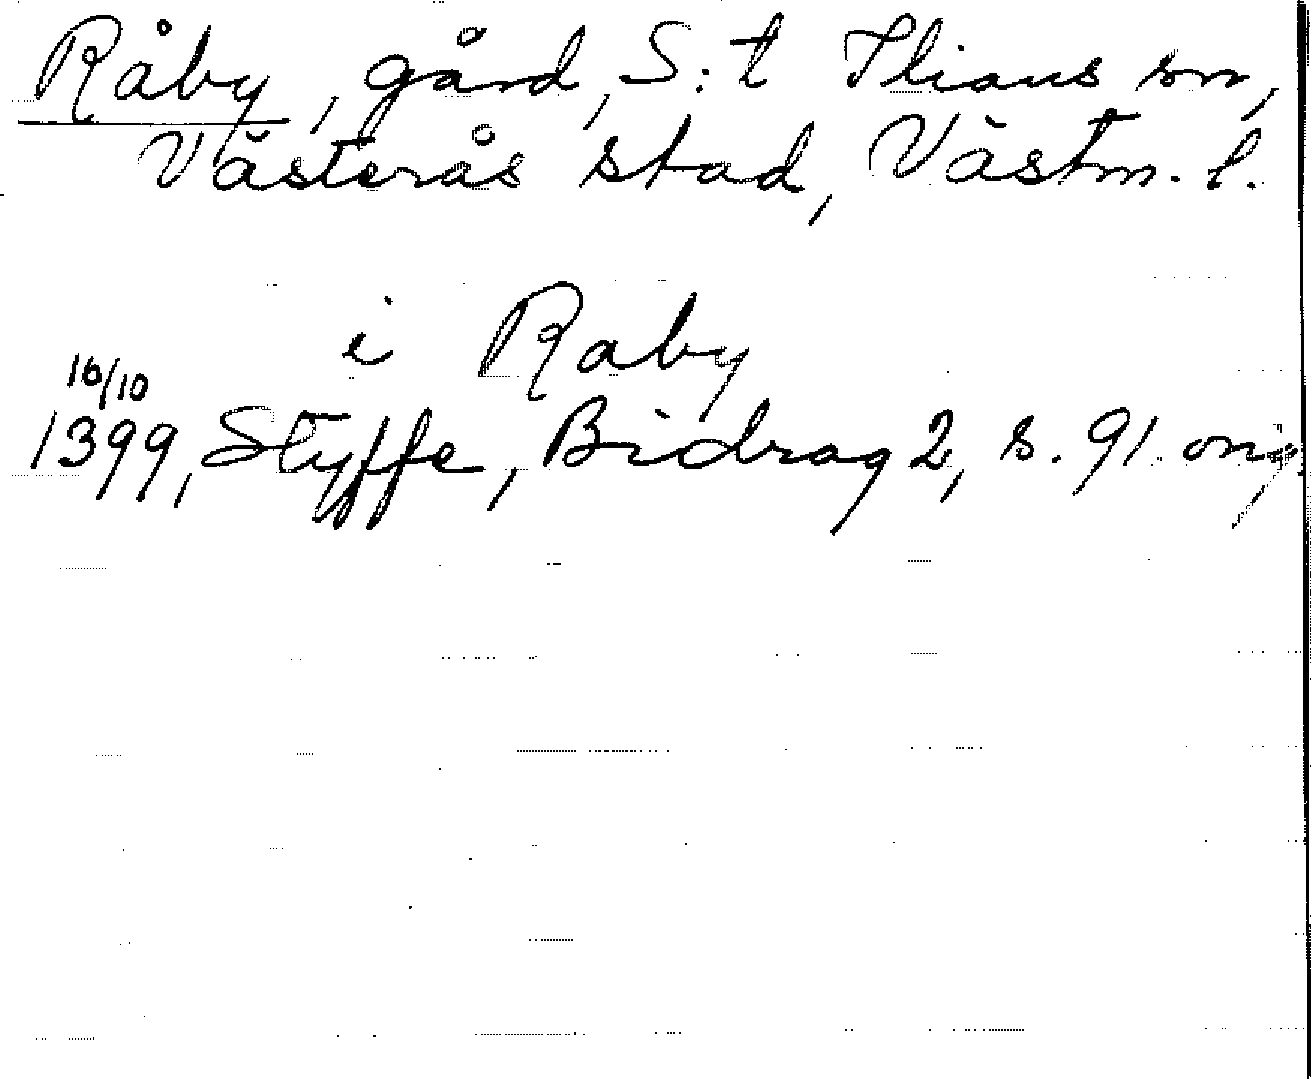 Råby, gård, S:t Ilians sn,
Västerås stad, Västm. l.
i Raby
16/10
1399, Styffe, Bidrag 2, s. 91 orig.